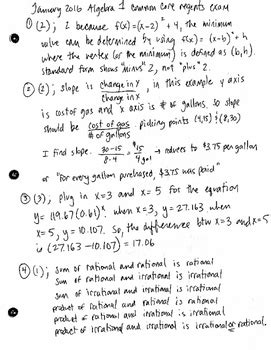 January 2016 Algebra 1 common core regents exam
① (2); 2 because f(x)=(x-2)² + 4, the minimum
value can be determined by using f(x) = (x-h)² + k
where the vertex (or the minimum) is defined as (h,k).
standard form shows "minus" 2, not "plus" 2.
② (2); slope is change in y / change in x, in this example y axis
is cost of gas and x axis is # of gallons. so slope
should be cost of gas / # of gallons picking points (4,15) + (8,30)
I find slope. 30-15 / 8-4 $15 / 4 gal → reduces to $3.75 per gallon
or "For every gallon purchased, $3.75 was paid"
③ (3); plug in x=3 and x=5 for the equation
y= 119.67(0.61)ˣ. when x=3, y=27.163 when
x=5, y=10.107. So, the difference btw x=3 and x=5
is (27.163-10.107) = 17.06
④ (1); sum of rational and rational is rational
sum of rational and irrational is irrational
sum of irrational and irrational is irrational
product of rational and rational is rational
product of rational and irrational is irrational
product of irrational and irrational is irrational or rational.